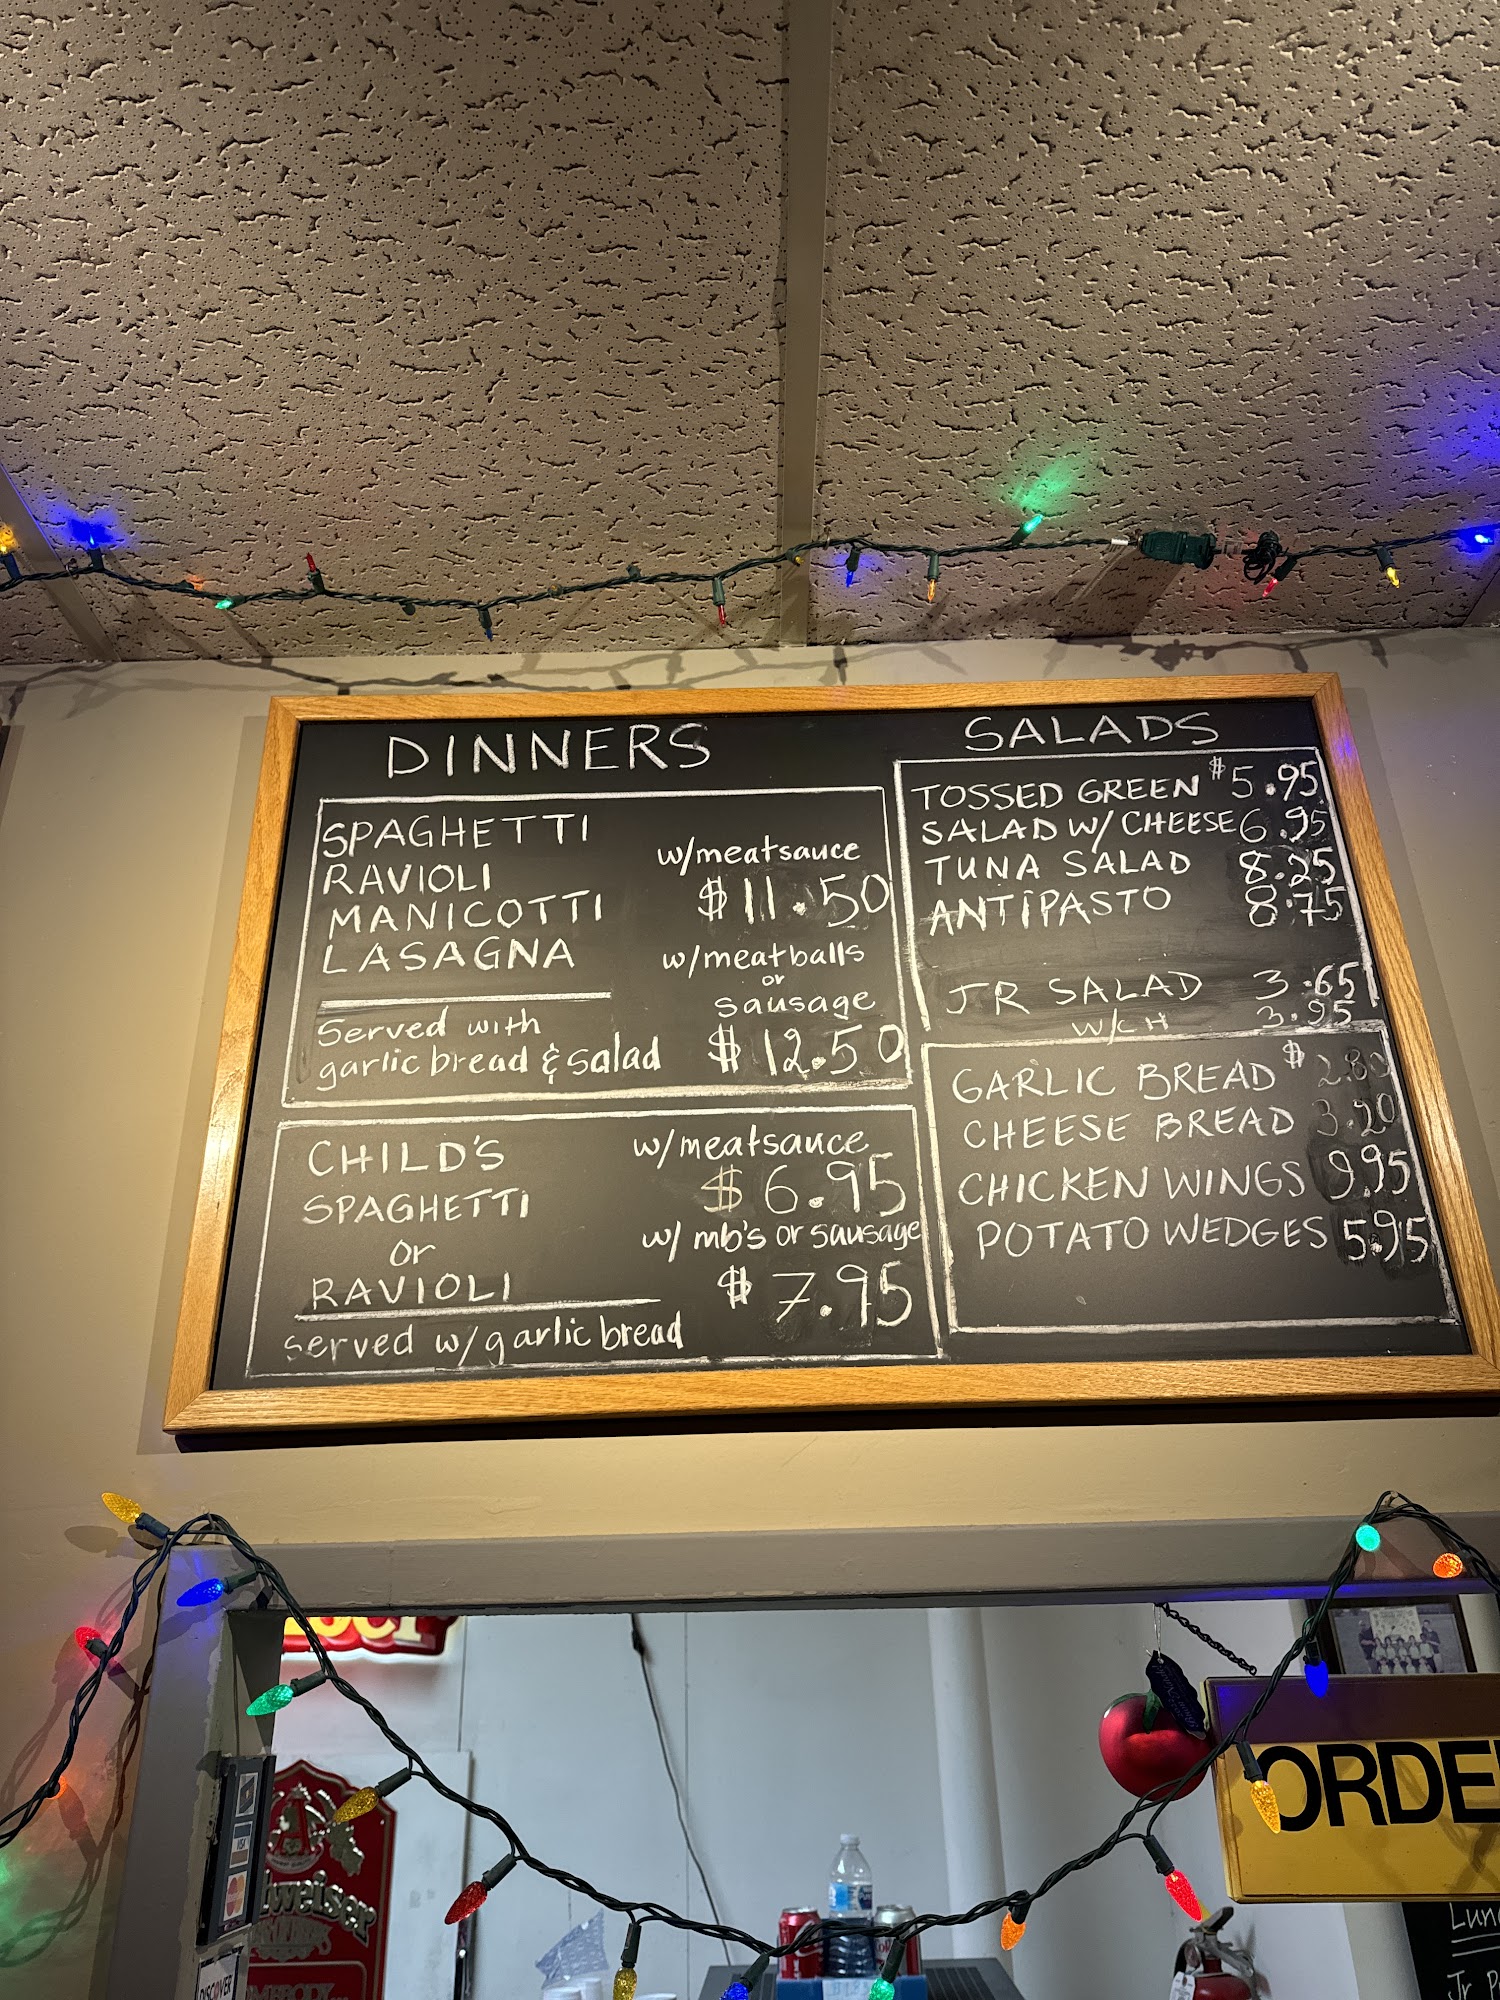 DINNERS
SPAGHETTI
RAVIOLI
MANICOTTI
LASAGNA
Served with
garlic bread & salad
w/meatsauce
$11.50
w/meatballs
or
sausage
$12.50
CHILD'S
SPAGHETTI
or
RAVIOLI
served w/garlic bread
w/meatsauce
$6.95
w/ mb's or sausage
$7.95
SALADS
TOSSED GREEN $5.95
SALAD W/ CHEESE 6.95
TUNA SALAD 8.25
ANTIPASTO 8.75
JR SALAD 3.65
W/CH 3.95
GARLIC BREAD $2.80
CHEESE BREAD 3.20
CHICKEN WINGS 9.95
POTATO WEDGES 5.95
ORDE
VISA
DISCOVER